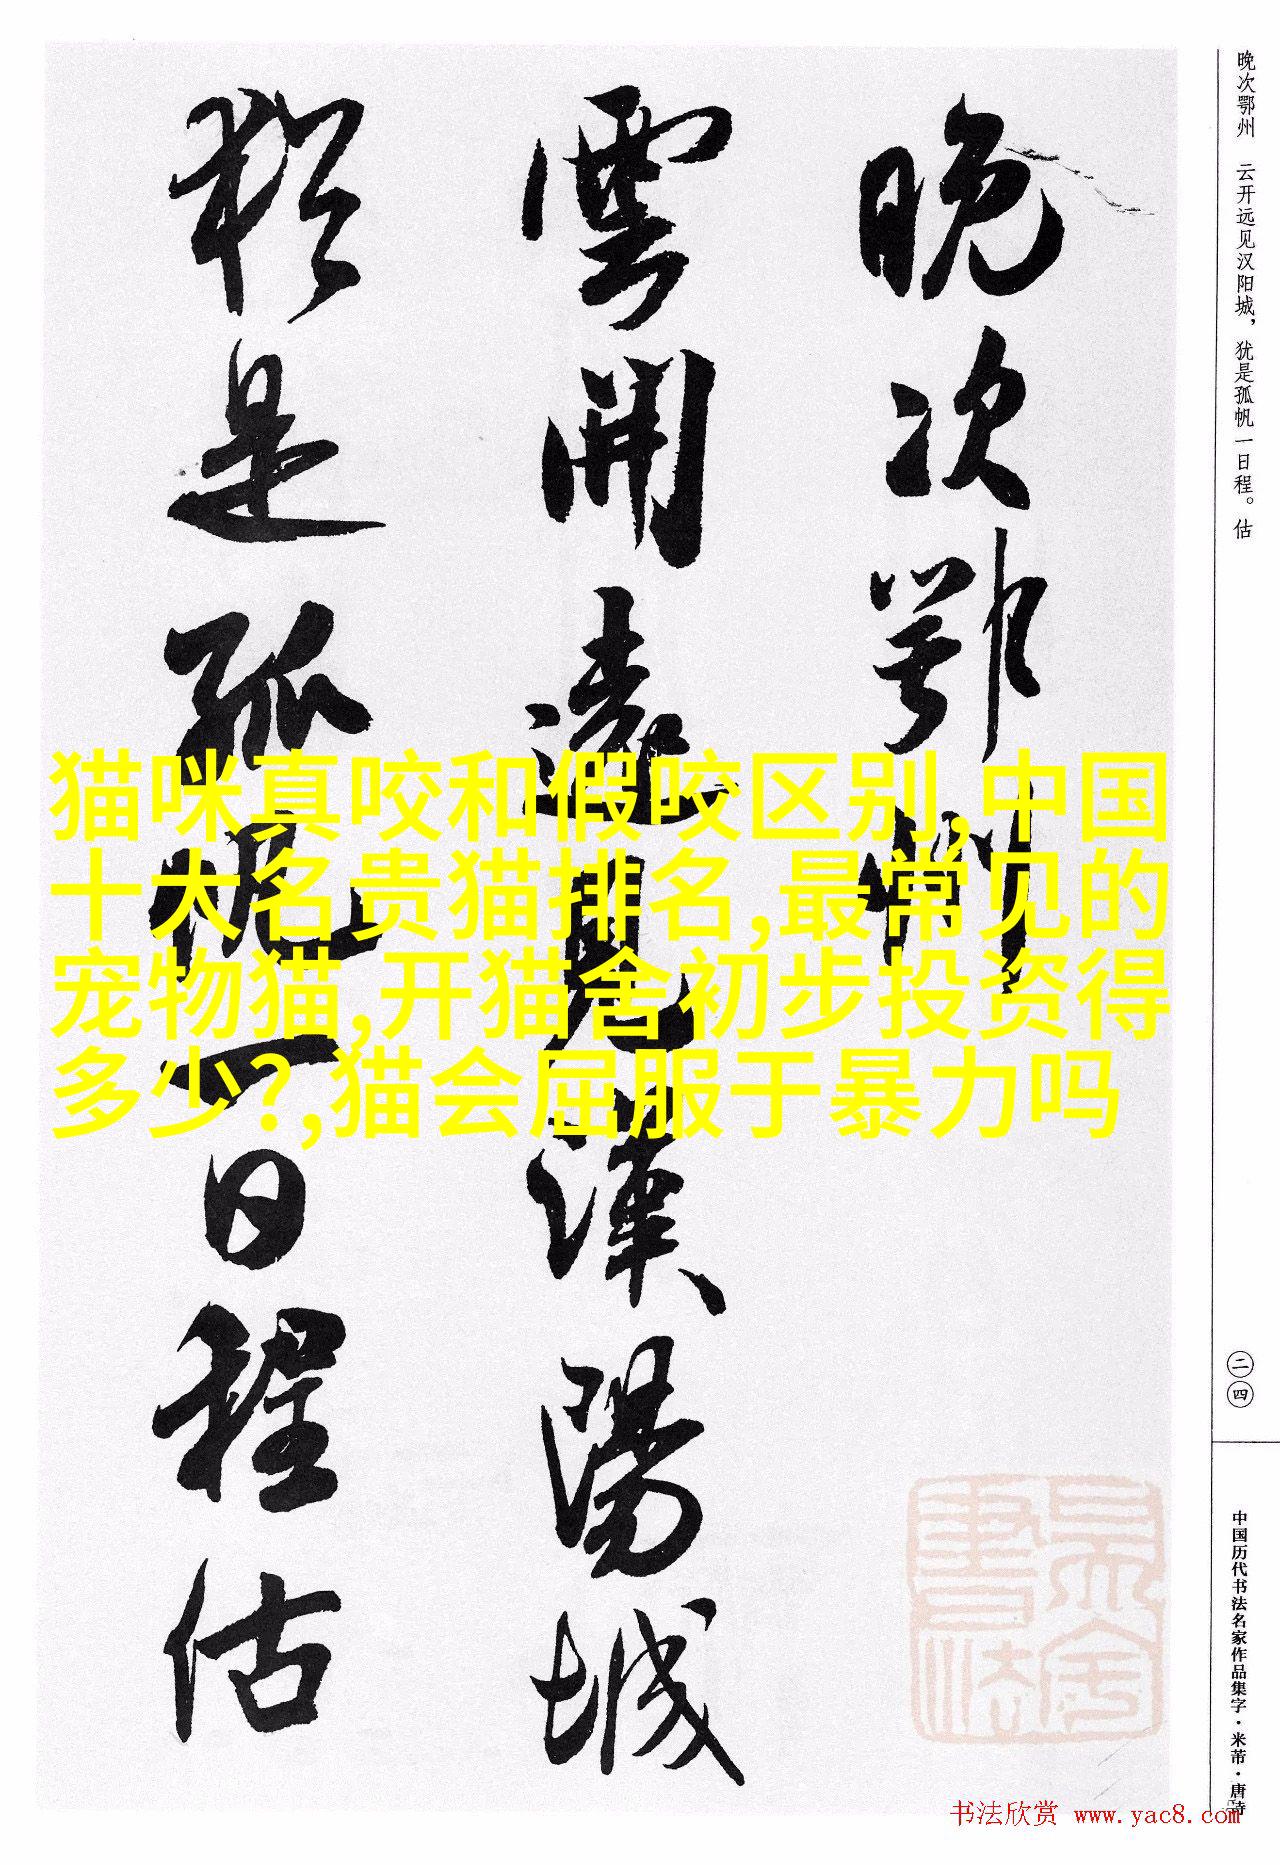 晚次鄂州
雲開遠見漢陽城
猶是孤帆一日程估
晚次鄂州 云开远见汉阳城，犹是孤帆一日程。估
二四
中国历代书法名家作品集字·米芾·唐诗
猫咪真咬和假咬区别,中国
十大名贵猫排名,最常见的
宠物猫,开猫舍初步投资得
多少?,猫会屈服于暴力吗
书法欣赏 www.yac8.com